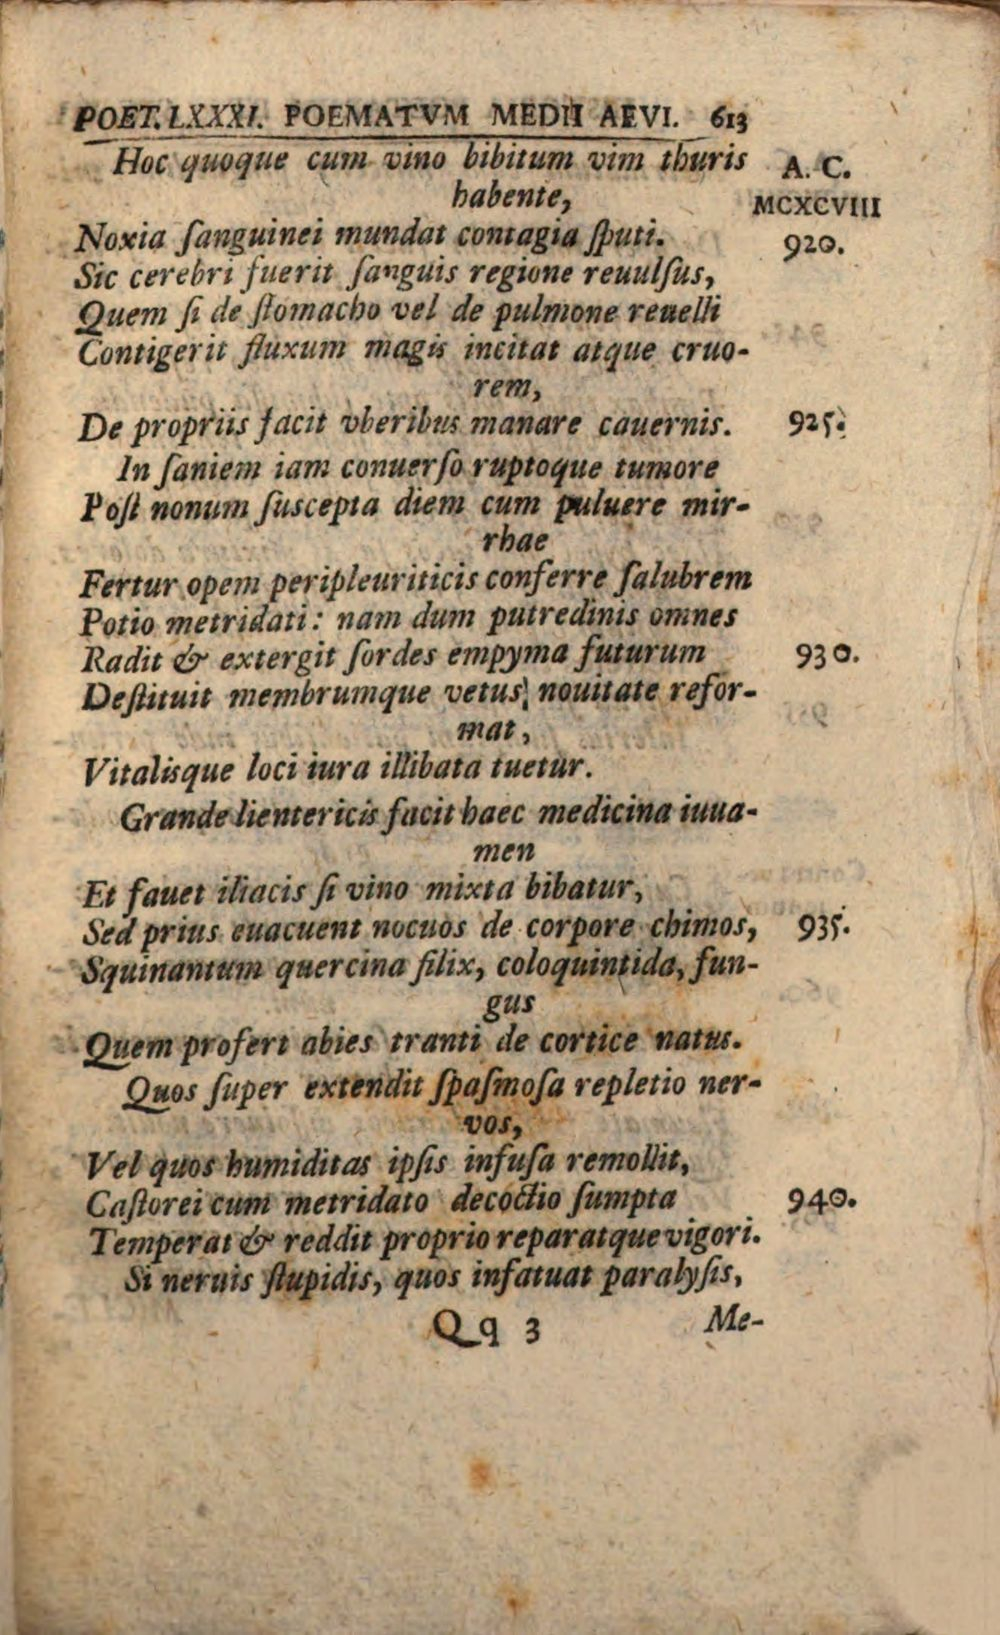 POET. LXXXI. POEMATVM MEDII AEVI. 613
Hoc quoque cum vino bibitum vim thuris
habente,
A. C.
MCXCVIII
Noxia ſanguinei mundat contagia ſputi. 920.
Sic cerebri fuerit ſanguis regione reuulſus,
Quem ſi de ſtomacho vel de pulmone reuelli
Contigerit fluxum magis incitat atque cruo-
rem,
De propriis facit vberibus manare cauernis. 925.
In ſaniem iam conuerſo ruptoque tumore
Poſt nonum ſuscepta diem cum puluere mir-
rhae
Fertur opem peripleuriticis conferre ſalubrem
Potio metridati: nam dum putredinis omnes
Radit & extergit ſordes empyma futurum 930.
Deſtituit membrumque vetus, nouitate refor-
mat,
Vitalisque loci iura illibata tuetur.
Grande lientericis facit haec medicina iuua-
men
Et fauet iliacis ſi vino mixta bibatur,
Sed prius euacuent nocuos de corpore chimos, 935.
Squinantum quercina filix, coloquintida, fun-
gus
Quem profert abies tranti de cortice natus.
Quos ſuper extendit ſpaſmoſa repletio ner-
vos,
Vel quos humiditas ipſis infuſa remollit,
Caſtorei cum metridato decoctio ſumpta 940.
Temperat & reddit proprio reparatque vigori.
Si neruis ſtupidis, quos infatuat paralyſis,
Qq 3 Me-